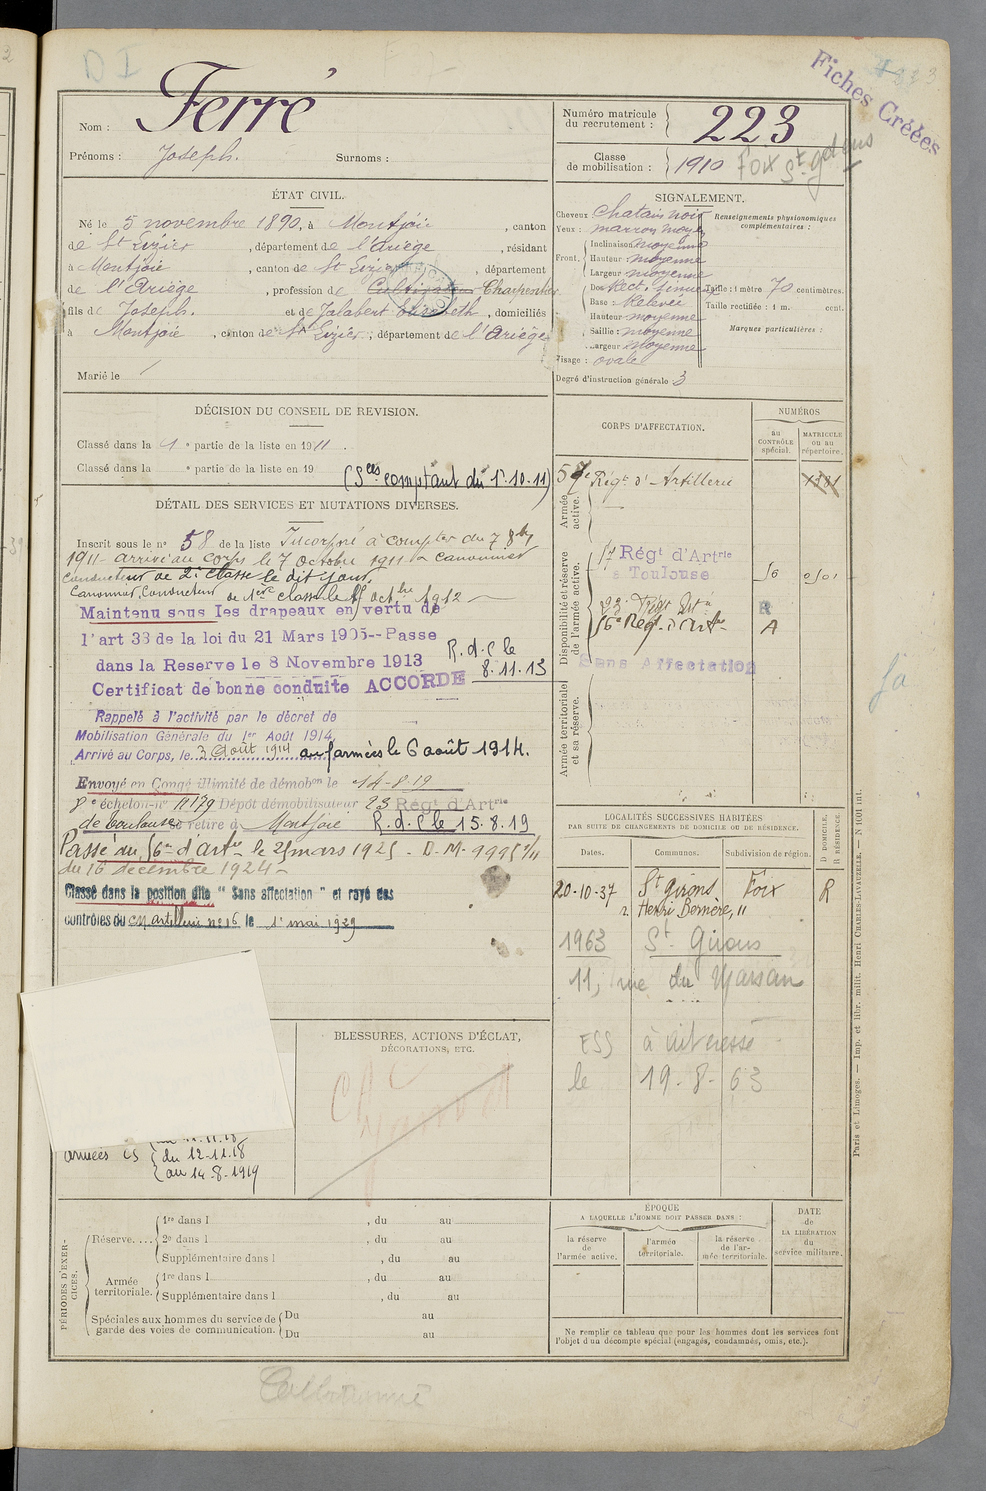 DI
Fiches Créées
223
Nom : Ferré
Prénoms : Joseph. Surnoms :
Numéro matricule du recrutement : 223
Classe de mobilisation : 1910 Foix St-Girons
ÉTAT CIVIL.
Né le 5 novembre 1890, à Montjoie, canton
de St Lizier, département de l'Ariège, résidant
à Montjoie, canton de St Lizier, département
de l'Ariège, profession de Cultivateur Charpentier
fils de Joseph. et de Jalabert Elisabeth, domiciliés
à Montjoie, canton de St Lizier, département de l'Ariège
Marié le
SIGNALEMENT.
Cheveux Chatain noir
Yeux : marron moyen
Front. Inclinaison moyenne
Hauteur : moyenne
Largeur moyenne
Dos Rect.
Base : Relevée
Hauteur moyenne
Saillie : moyenne
Largeur moyenne
Visage : ovale
Renseignements physionomiques complémentaires :
Taille : 1 mètre 70 centimètres.
Taille rectifiée : 1 m. cent.
Marques particulières :
Degré d'instruction générale 3
DÉCISION DU CONSEIL DE REVISION.
Classé dans la 1e partie de la liste en 1911
Classé dans la e partie de la liste en 19
(Sces comptant du 1-10-11)
DÉTAIL DES SERVICES ET MUTATIONS DIVERSES.
Inscrit sous le no 58 de la liste Incorporé à compter du 7 8bre
1911 arrivé au corps le 7 octobre 1911 canonnier
conducteur de 2e classe le dit jour.
Canonnier Conducteur de 1ere classe le octbre 1912
Maintenu sous les drapeaux en vertu de
l'art 33 de la loi du 21 Mars 1905--Passe
dans la Reserve le 8 Novembre 1913 R.d.C le 8.11.13
Certificat de bonne conduite ACCORDE
Rappelé à l'activité par le décret de
Mobilisation Générale du 1er Août 1914.
Arrivé au Corps, le 3 Août 1914 aux armées le 6 août 1914.
Envoyé en Congé illimité de démobon le 14-8-19
8e échelon-no Dépôt démobilisateur 23 Régt d'Artrie
de Toulouse se retire à Montjoie R.d.C le 15.8.19
Passé au 16e d'artie le 25 mars 1925 - D.M. 9995
du 16 décembre 1924
Classé dans la position dite " Sans affectation " et rayé des
contrôles du CM Artillerie no 16 le 1er mai 1939
CORPS D'AFFECTATION.
NUMÉROS
au CONTRÔLE spécial.
MATRICULE ou au répertoire.
Armée active.
57e Régt d'Artillerie
Disponibilité et réserve de l'armée active.
17 Régt d'Artrie
à Toulouse
16
23e Régt
R
16e Régt d'art
A
Sans Affectation
Armée territoriale et sa réserve.
LOCALITÉS SUCCESSIVES HABITÉES
PAR SUITE DE CHANGEMENTS DE DOMICILE OU DE RÉSIDENCE.
Dates. Communes. Subdivision de région.
D DOMICILE, R RÉSIDENCE.
20-10-37 St girons Foix R
r. Henri Bernère, 11
1963 St-Girons
11, rue du Marsan
ESS à intéressé
le 19-8-63
BLESSURES, ACTIONS D'ÉCLAT,
DÉCORATIONS, ETC.
du 12-11-18
au 14-8-1919
PÉRIODES D'EXERCICES.
Réserve....
1re dans l , du au
2e dans l , du au
Supplémentaire dans l , du au
Armée territoriale.
1re dans l , du au
Supplémentaire dans l , du au
Spéciales aux hommes du service de garde des voies de communication.
Du au
Du au
ÉPOQUE
A LAQUELLE L'HOMME DOIT PASSER DANS :
la réserve de l'armée active.
l'armée territoriale.
la réserve de l'armée territoriale.
DATE de LA LIBÉRATION du service militaire.
Ne remplir ce tableau que pour les hommes dont les services font
l'objet d'un décompte spécial (engagés, condamnés, omis, etc.).
Paris et Limoges. — Imp. et libr. milit. Henri CHARLES-LAVAUZELLE. — N 1001 int.